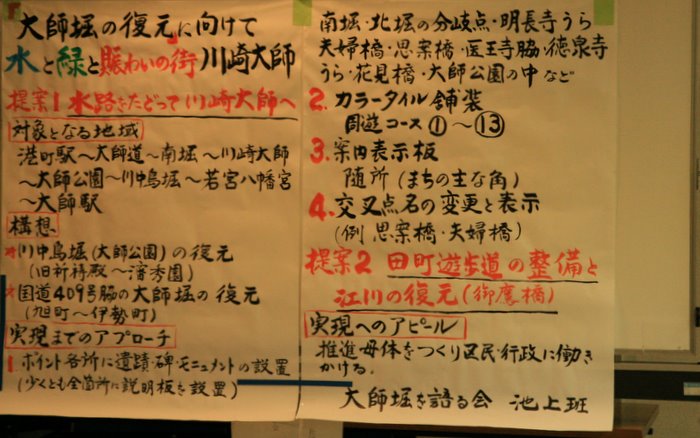 大師堀の復元に向けて
水と緑と賑わいの街 川崎大師
提案1 水路をたどって川崎大師へ
対象となる地域
港町駅〜大師道〜南堀〜川崎大師
〜大師公園〜川中島堀〜若宮八幡宮
〜大師駅
構想
川中島堀(大師公園)の復元
(旧祈祷殿〜瀋秀園)
国道409号脇の大師堀の復元
(旭町〜伊勢町)
実現までのアプローチ
1. ポイント各所に遺蹟・碑・モニュメントの設置
(少くとも全箇所に説明板を設置)
南堀・北堀の分岐点・明長寺うら
夫婦橋・思案橋・医王寺脇・徳泉寺
うら・花見橋・大師公園の中など
2. カラータイル舗装
回遊コース①〜⑬
3. 案内表示板
随所(まちの主な角)
4. 交叉点名の変更と表示
(例 思案橋・夫婦橋)
提案2 田町遊歩道の整備と
江川の復元(御鷹橋)
実現へのアピール
推進母体をつくり区民・行政に働き
かける。
大師堀を語る会 池上班